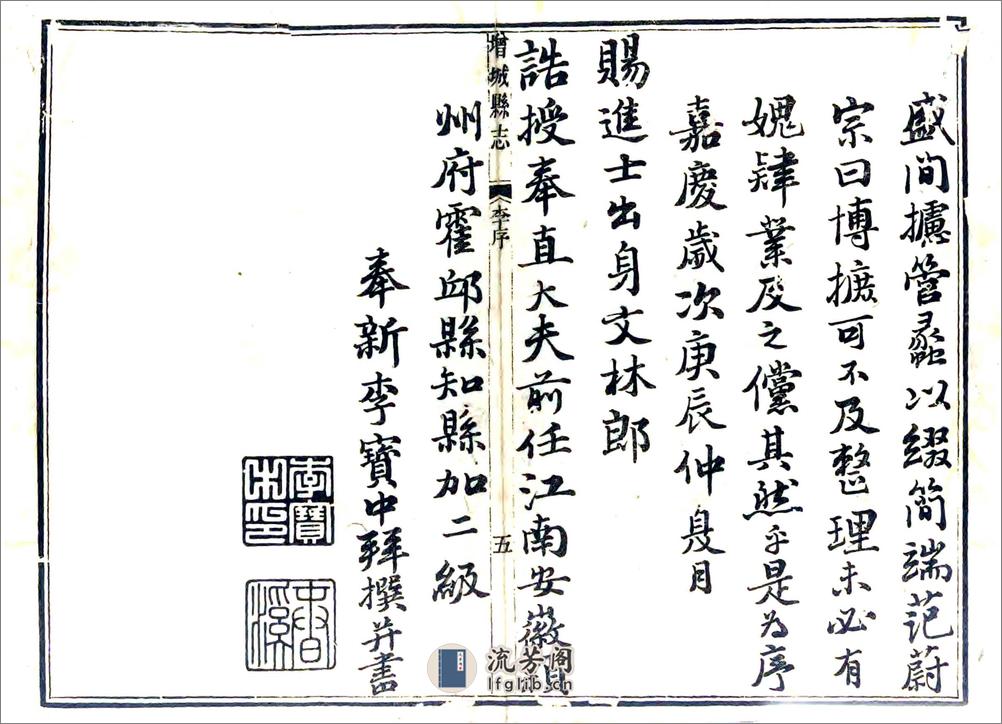 盛間攄管蠡以綴簡端范蔚
宗曰博摭可不及整理未必有
媿肄業及之儻其然乎是為序
嘉慶歲次庚辰仲夏月
賜進士出身文林郎
誥授奉直大夫前任江南安徽
增城縣志 李序 五
州府霍邱縣知縣加二級
奉新李寶中拜撰并書
李寶中印
流芳阁
lfglib.cn